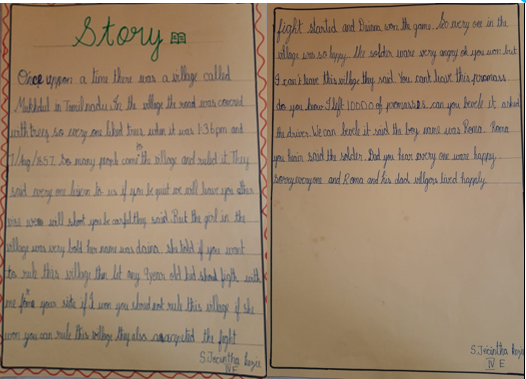 Story
Once uppon a time there was a village called
in Tamilnadu. In the village the road was covered
with trees so every one liked trees when it was 1:36 pm and
7/Aug/857. So many people came to the village and ruled it. They
said every one lisen to us if you be quiet we will leave you
we will shoot you be carful they said. But the girl in the
village was very bold her name was she told if you want
to rule this village then let any 9 year old kid fight with
me from your side if I won you should not rule this village if she
won you can rule this village they also the fight
S. Jecintha
IV E
fight started and won the game. So every one in the
village was so happy. The solder were very angry ok you won but
I can't leave this village they said. You can't leave this
do you know I left 10000 of can you it asked
the We can it said the boy name was Roma. Roma
you said the solder. Dad you hear every one were happy.
sorry everyone and Roma and his dad lived happly.
S. Jecintha
IV E